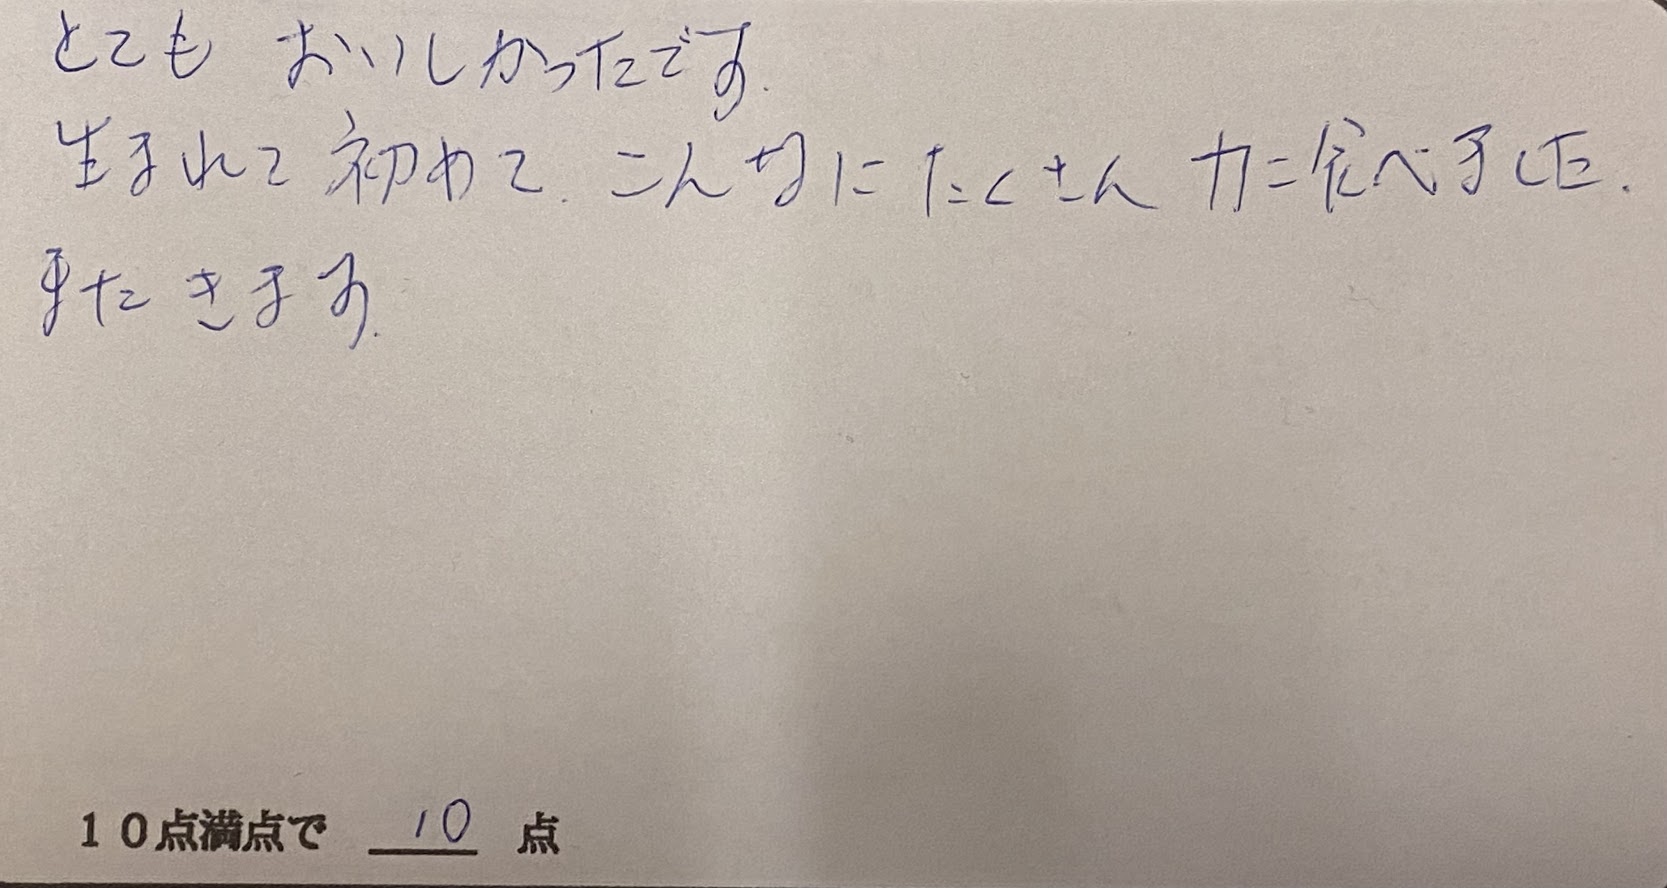 とても おいしかったです.
生まれて 初めて. こんなに たくさん カニ 食べました.
また きます.
10点満点で 10 点